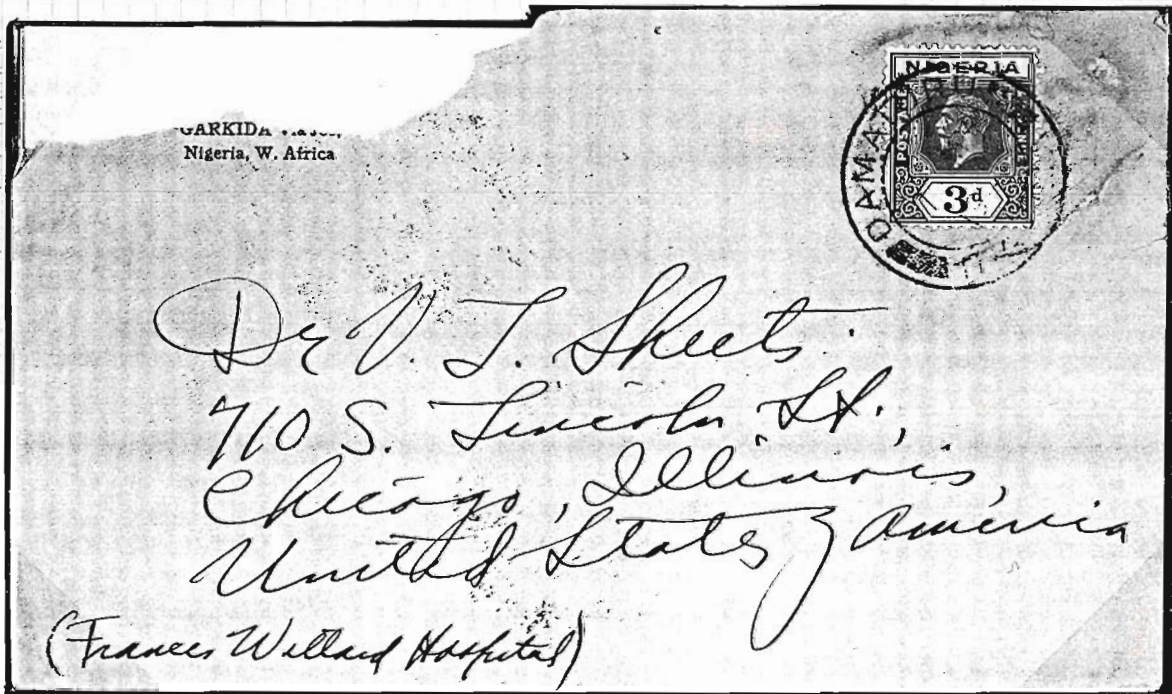 GARKIDA via Jos,
Nigeria, W. Africa
NIGERIA
POSTAGE
3d
DAMATURU
Dr V. T. Sheets
710 S. Lincoln St,
Chicago, Illinois,
United States of America
(Frances Willard Hospital)